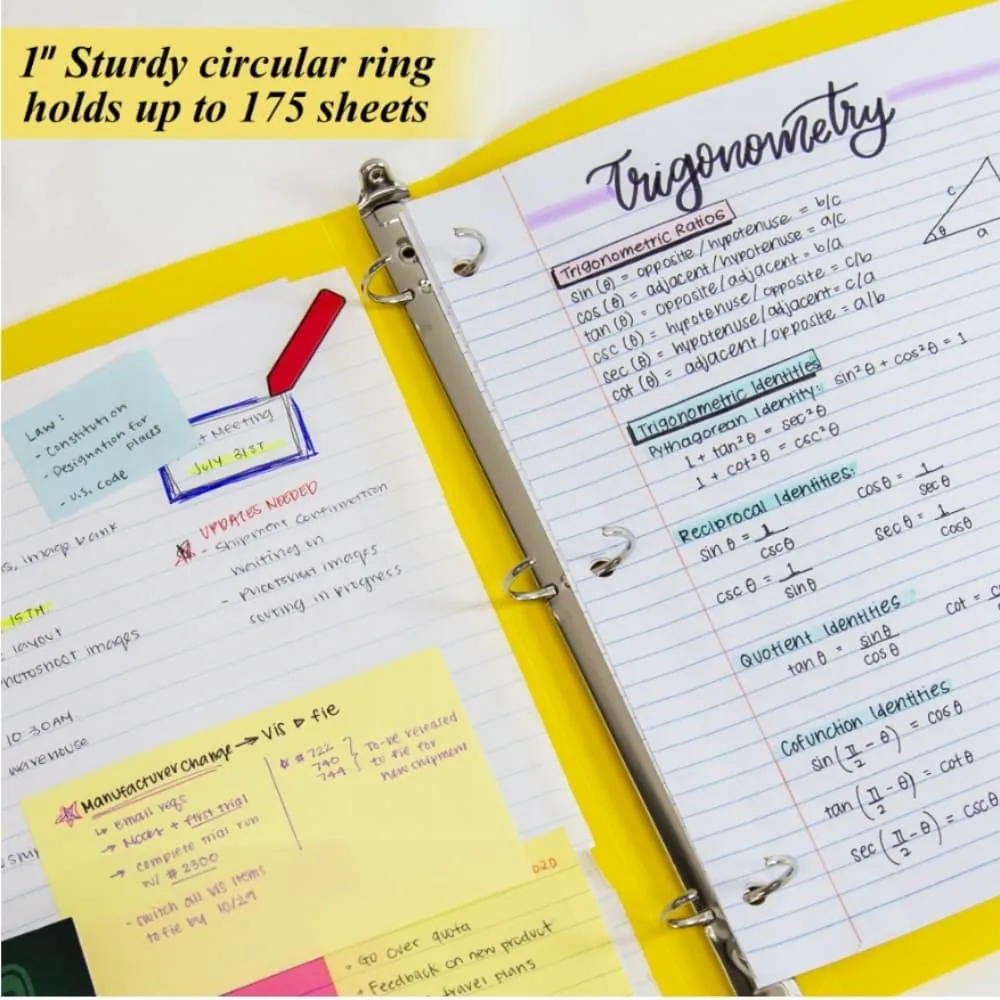 1" Sturdy circular ring
holds up to 175 sheets
Trigonometry
Trigonometric Ratios
sin (θ) = opposite/hypotenuse = b/c
cos (θ) = adjacent/hypotenuse = a/c
tan (θ) = opposite/adjacent = b/a
csc (θ) = hypotenuse/opposite = c/b
sec (θ) = hypotenuse/adjacent = c/a
cot (θ) = adjacent/opposite = a/b
c
θ
a
Trigonometric Identities
Pythagorean Identity: sin²θ + cos²θ = 1
1 + tan²θ = sec²θ
1 + cot²θ = csc²θ
Reciprocal Identities:
sin θ = 1/cscθ
cosθ = 1/secθ
csc θ = 1/sinθ
sec θ = 1/cosθ
Quotient Identities
tan θ = sinθ/cosθ
cot =
Cofunction Identities
sin(π/2 - θ) = cosθ
tan(π/2 - θ) = cotθ
sec(π/2 - θ) = cscθ
Law:
- Constitution
- Designation for
places
- U.S. code
Meeting
July 31ST
UPDATES NEEDED
- Shipment confirmation
waiting on
- photoshoot images
in progress
image bank
15TH
layout
images
10:30AM
warehouse
Manufacturer change → Vis ▷ fie
↳ Email reqs
→ + first trial
→ complete trial run
w/ # 2300
- switch all vis items
to fie by 10/29
# 722
740
744
To-be released
to fie for
new shipment
020
• Go over quota
• Feedback on new product
travel plans